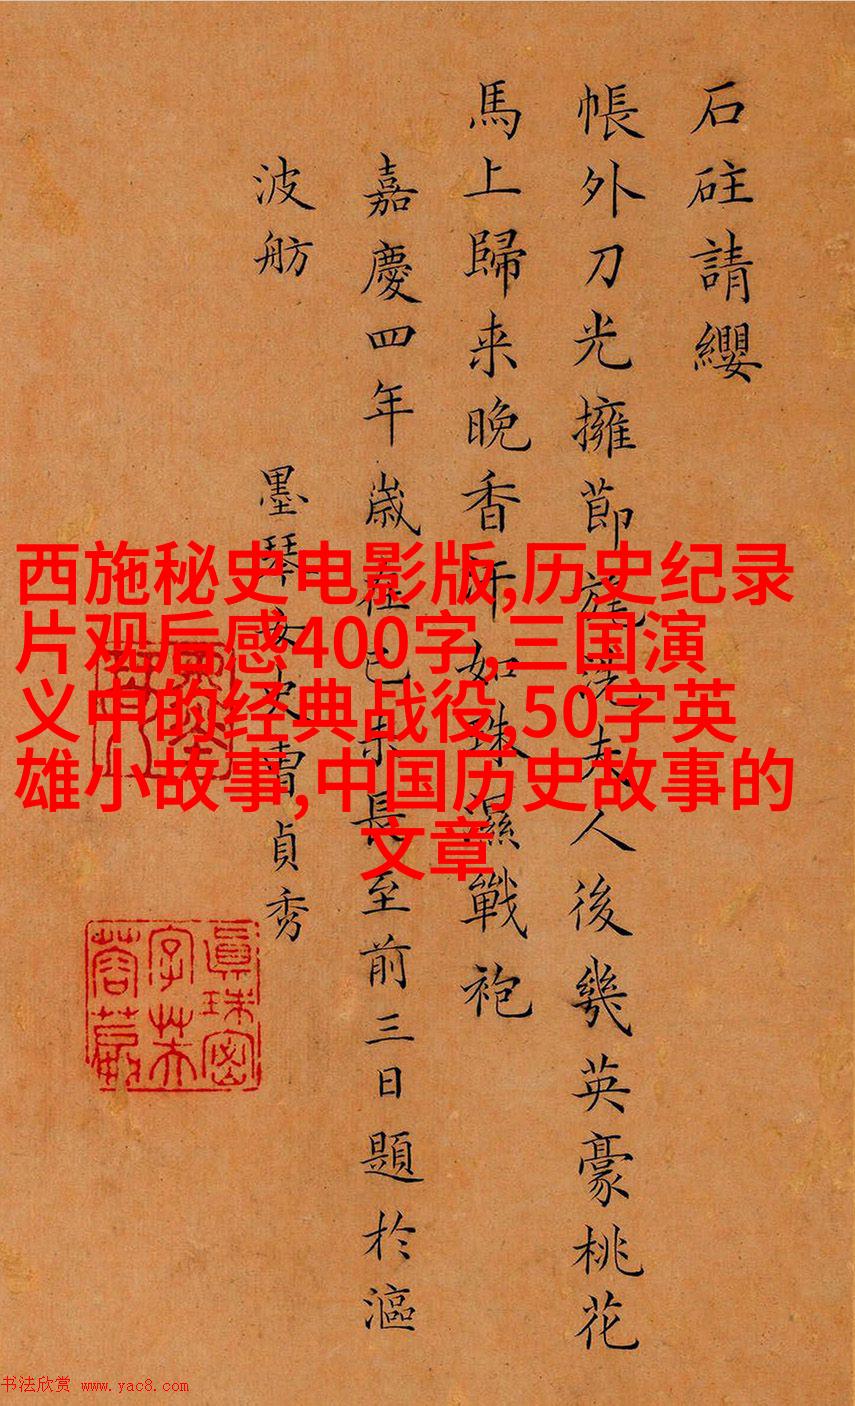 石砫請纓
帳外刀光擁節旄洗夫人後幾英豪桃花
馬上歸来晚香汗如珠濕戰袍
嘉慶四年歳在己未長至前三日題於漚
波舫 墨琴女史曹貞秀
西施秘史电影版,历史纪录
片观后感400字,三国演
义中的经典战役,50字英
雄小故事,中国历史故事的
文章
书法欣赏 www.yac8.com